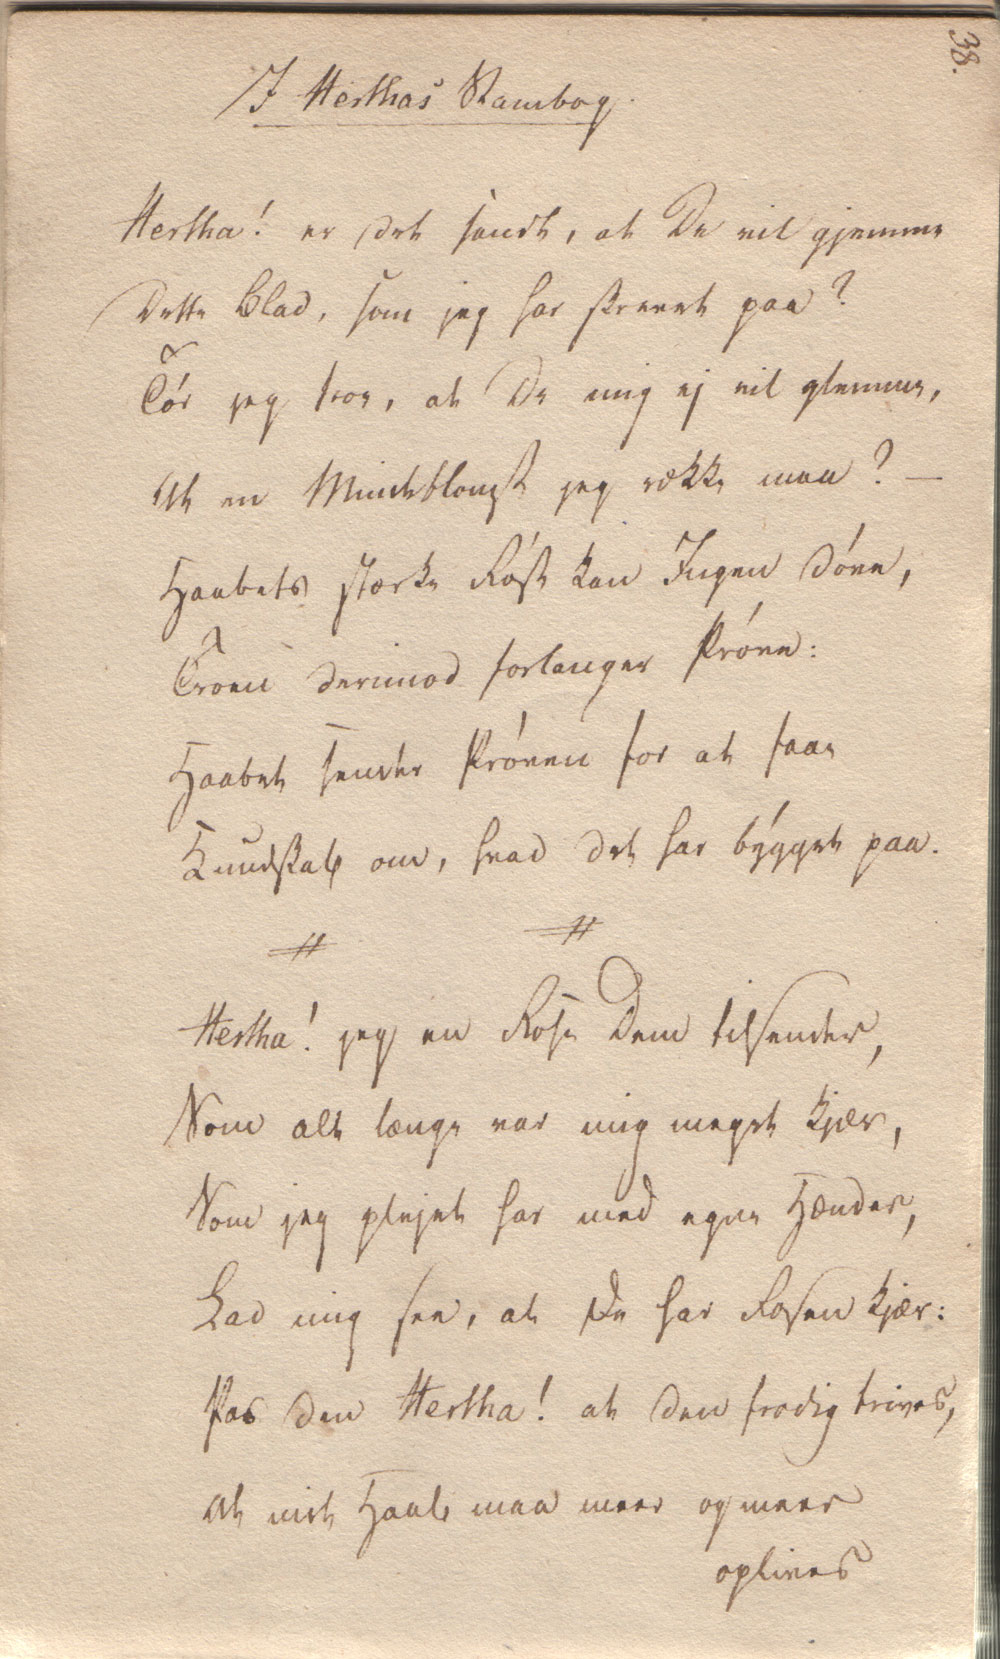 38.
I Herthas Stambog.
Hertha! er det sandt, at De vil gjemme
Dette Blad, som jeg har skrevet paa?
Tør jeg troe, at De mig ej vil glemme,
At en Mindeblomst jeg række maa? —
Haabets stærke Røst kan Ingen døve,
Troen derimod forlanger Prøve:
Haabet sender Prøven for at faae
Kundskab om, hvad det har bygget paa.
Hertha! jeg en Rose Dem tilsender,
Som alt længe var mig meget kjær,
Som jeg plejet har med egne Hænder,
Lad mig see, at De har Rosen kjær:
Pas den Hertha! at den frodig trives,
At mit Haab maa meer og meer
oplives